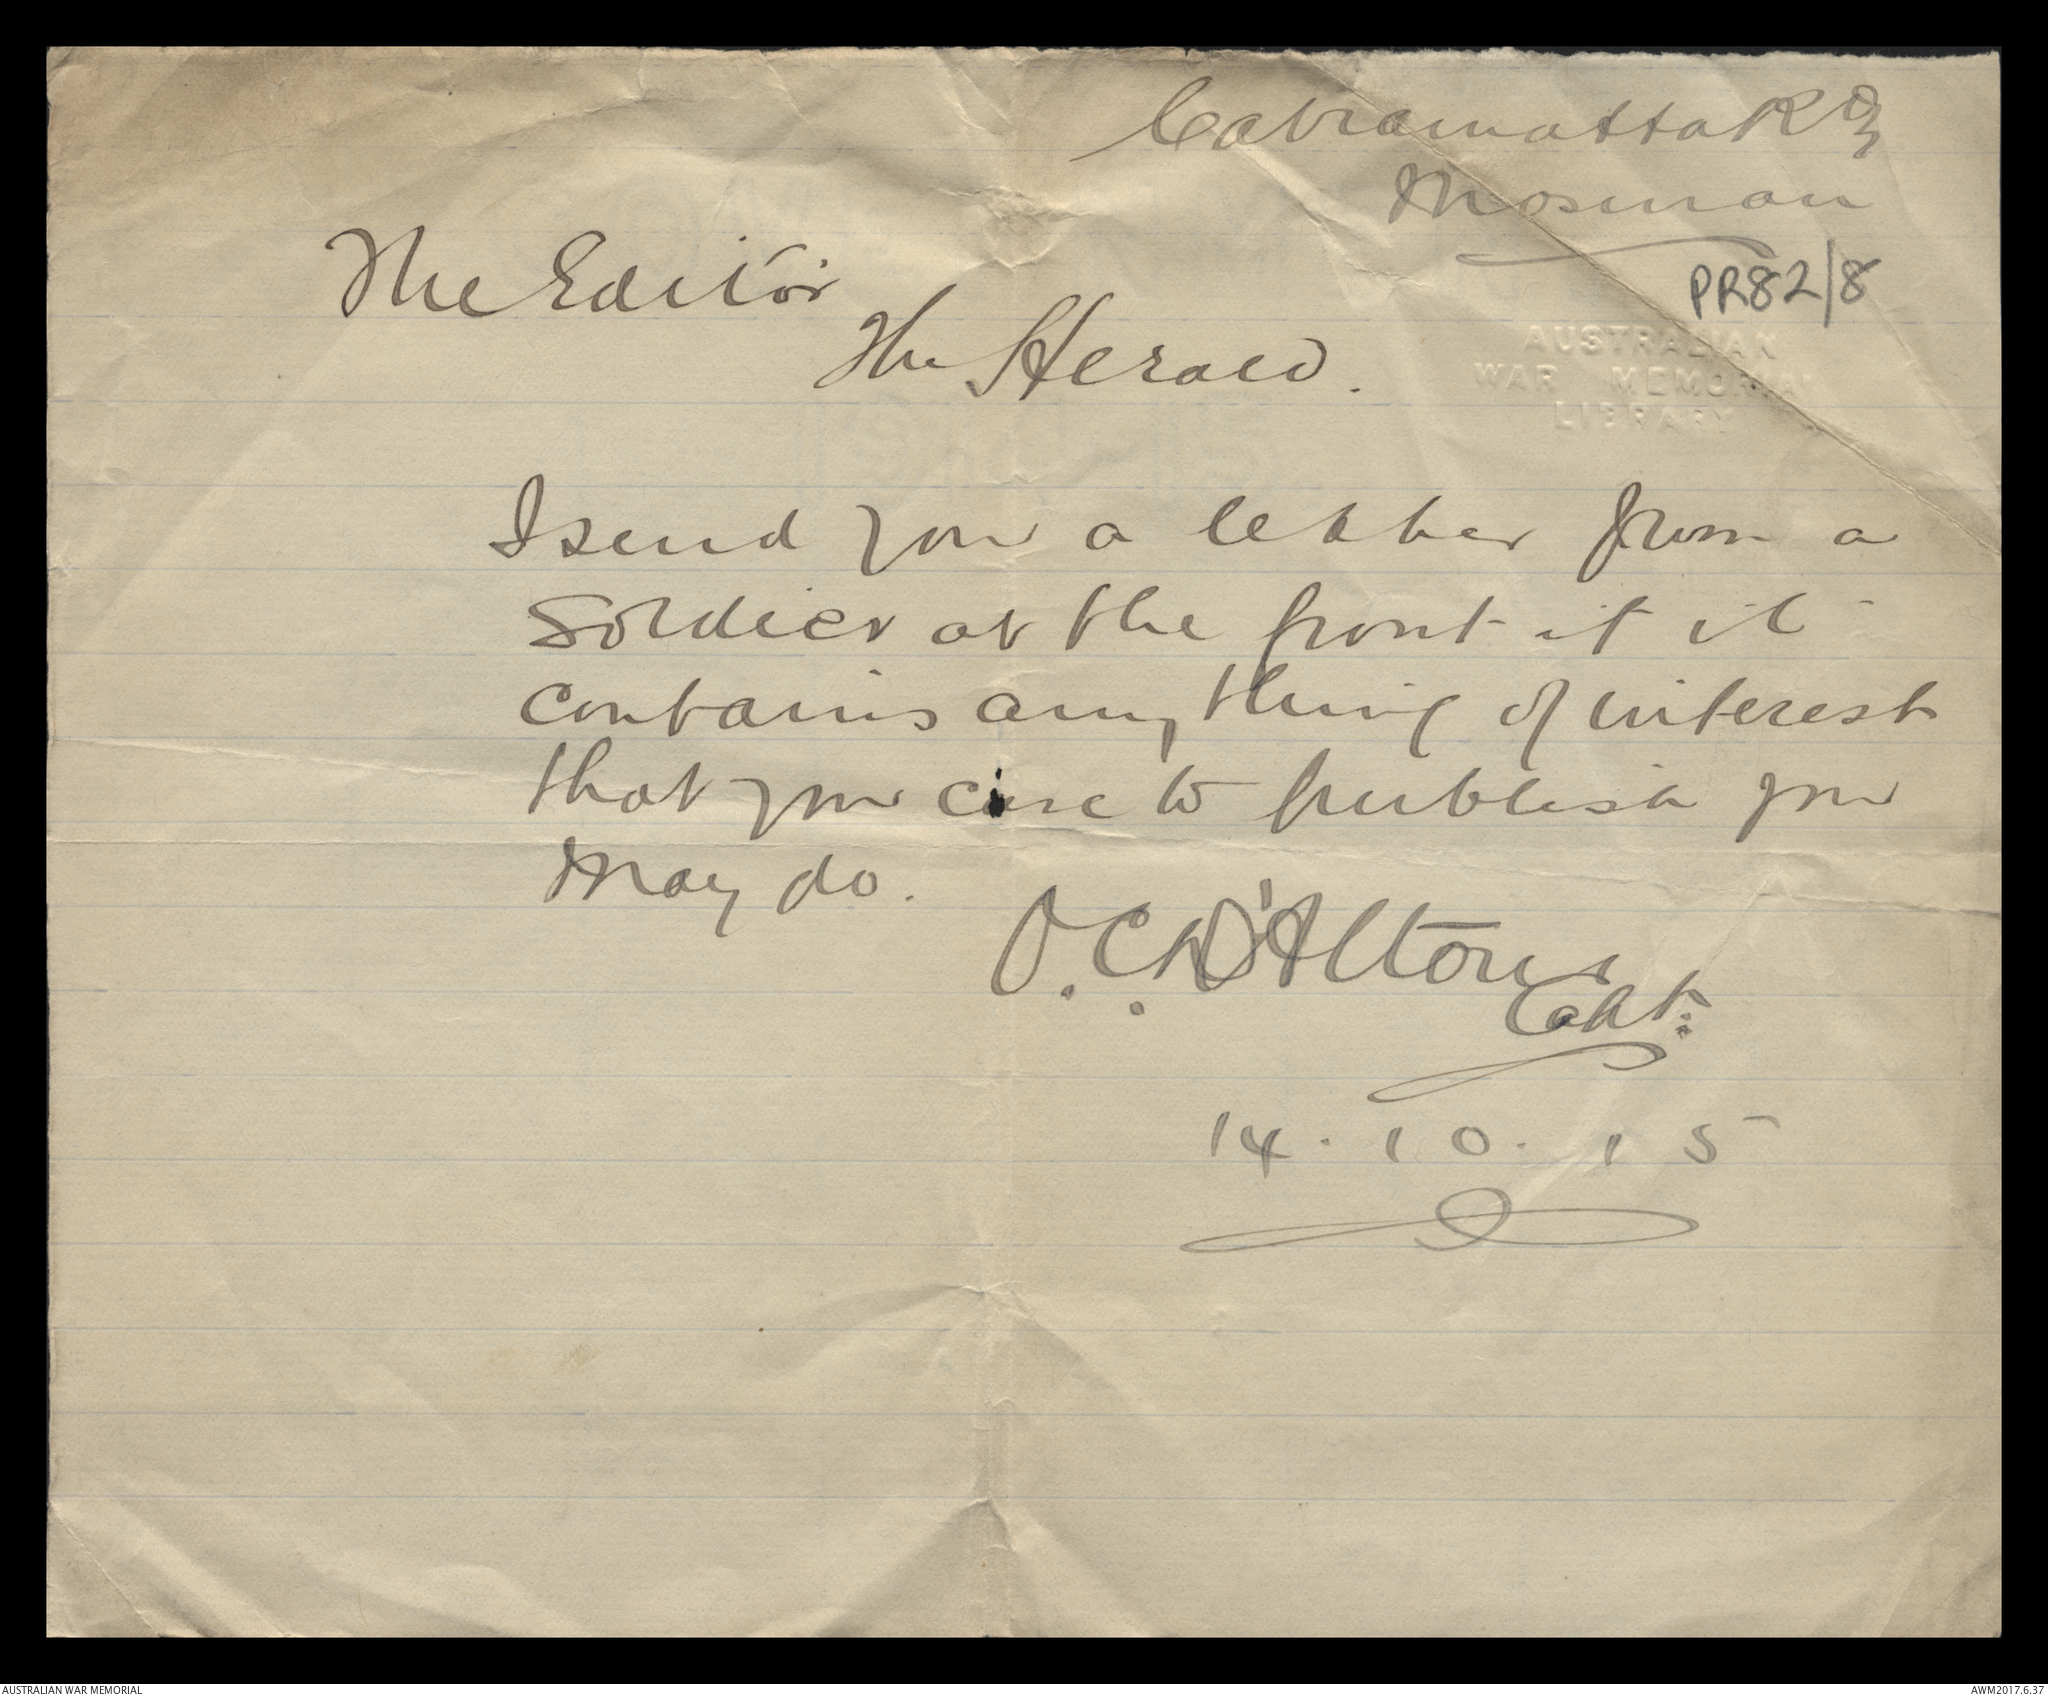 Cabramatta Rd
Mosman
PR82/8
AUSTRALIAN
WAR MEMORIAL
LIBRARY
The Editor
The Herald.
I send you a letter from a
soldier at the front if it
contains anything of interest
that you care to publish you
may do.
O.C.W D'Alton
Capt.
14.10.15
AUSTRALIAN WAR MEMORIAL
AWM2017.6.37